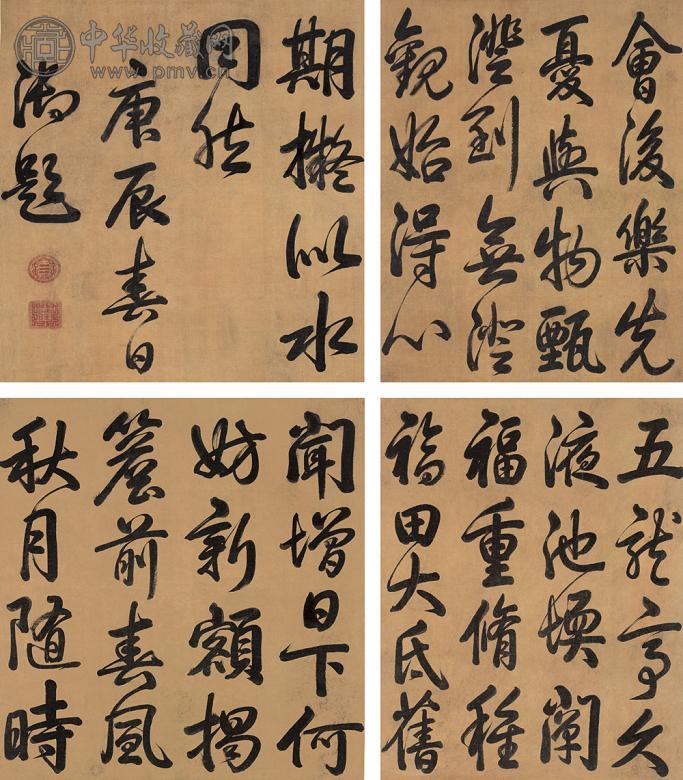 五龍亭久
液池堧闡
福重脩種
福田大氐舊
聞增日下何
妨新額揭
簷前春風
秋月隨時
會後樂先
憂與物甄
澄到無澄
觀始得心
期擬似水
同然
庚辰春日
御題
中华收藏网
www.pmv.cn